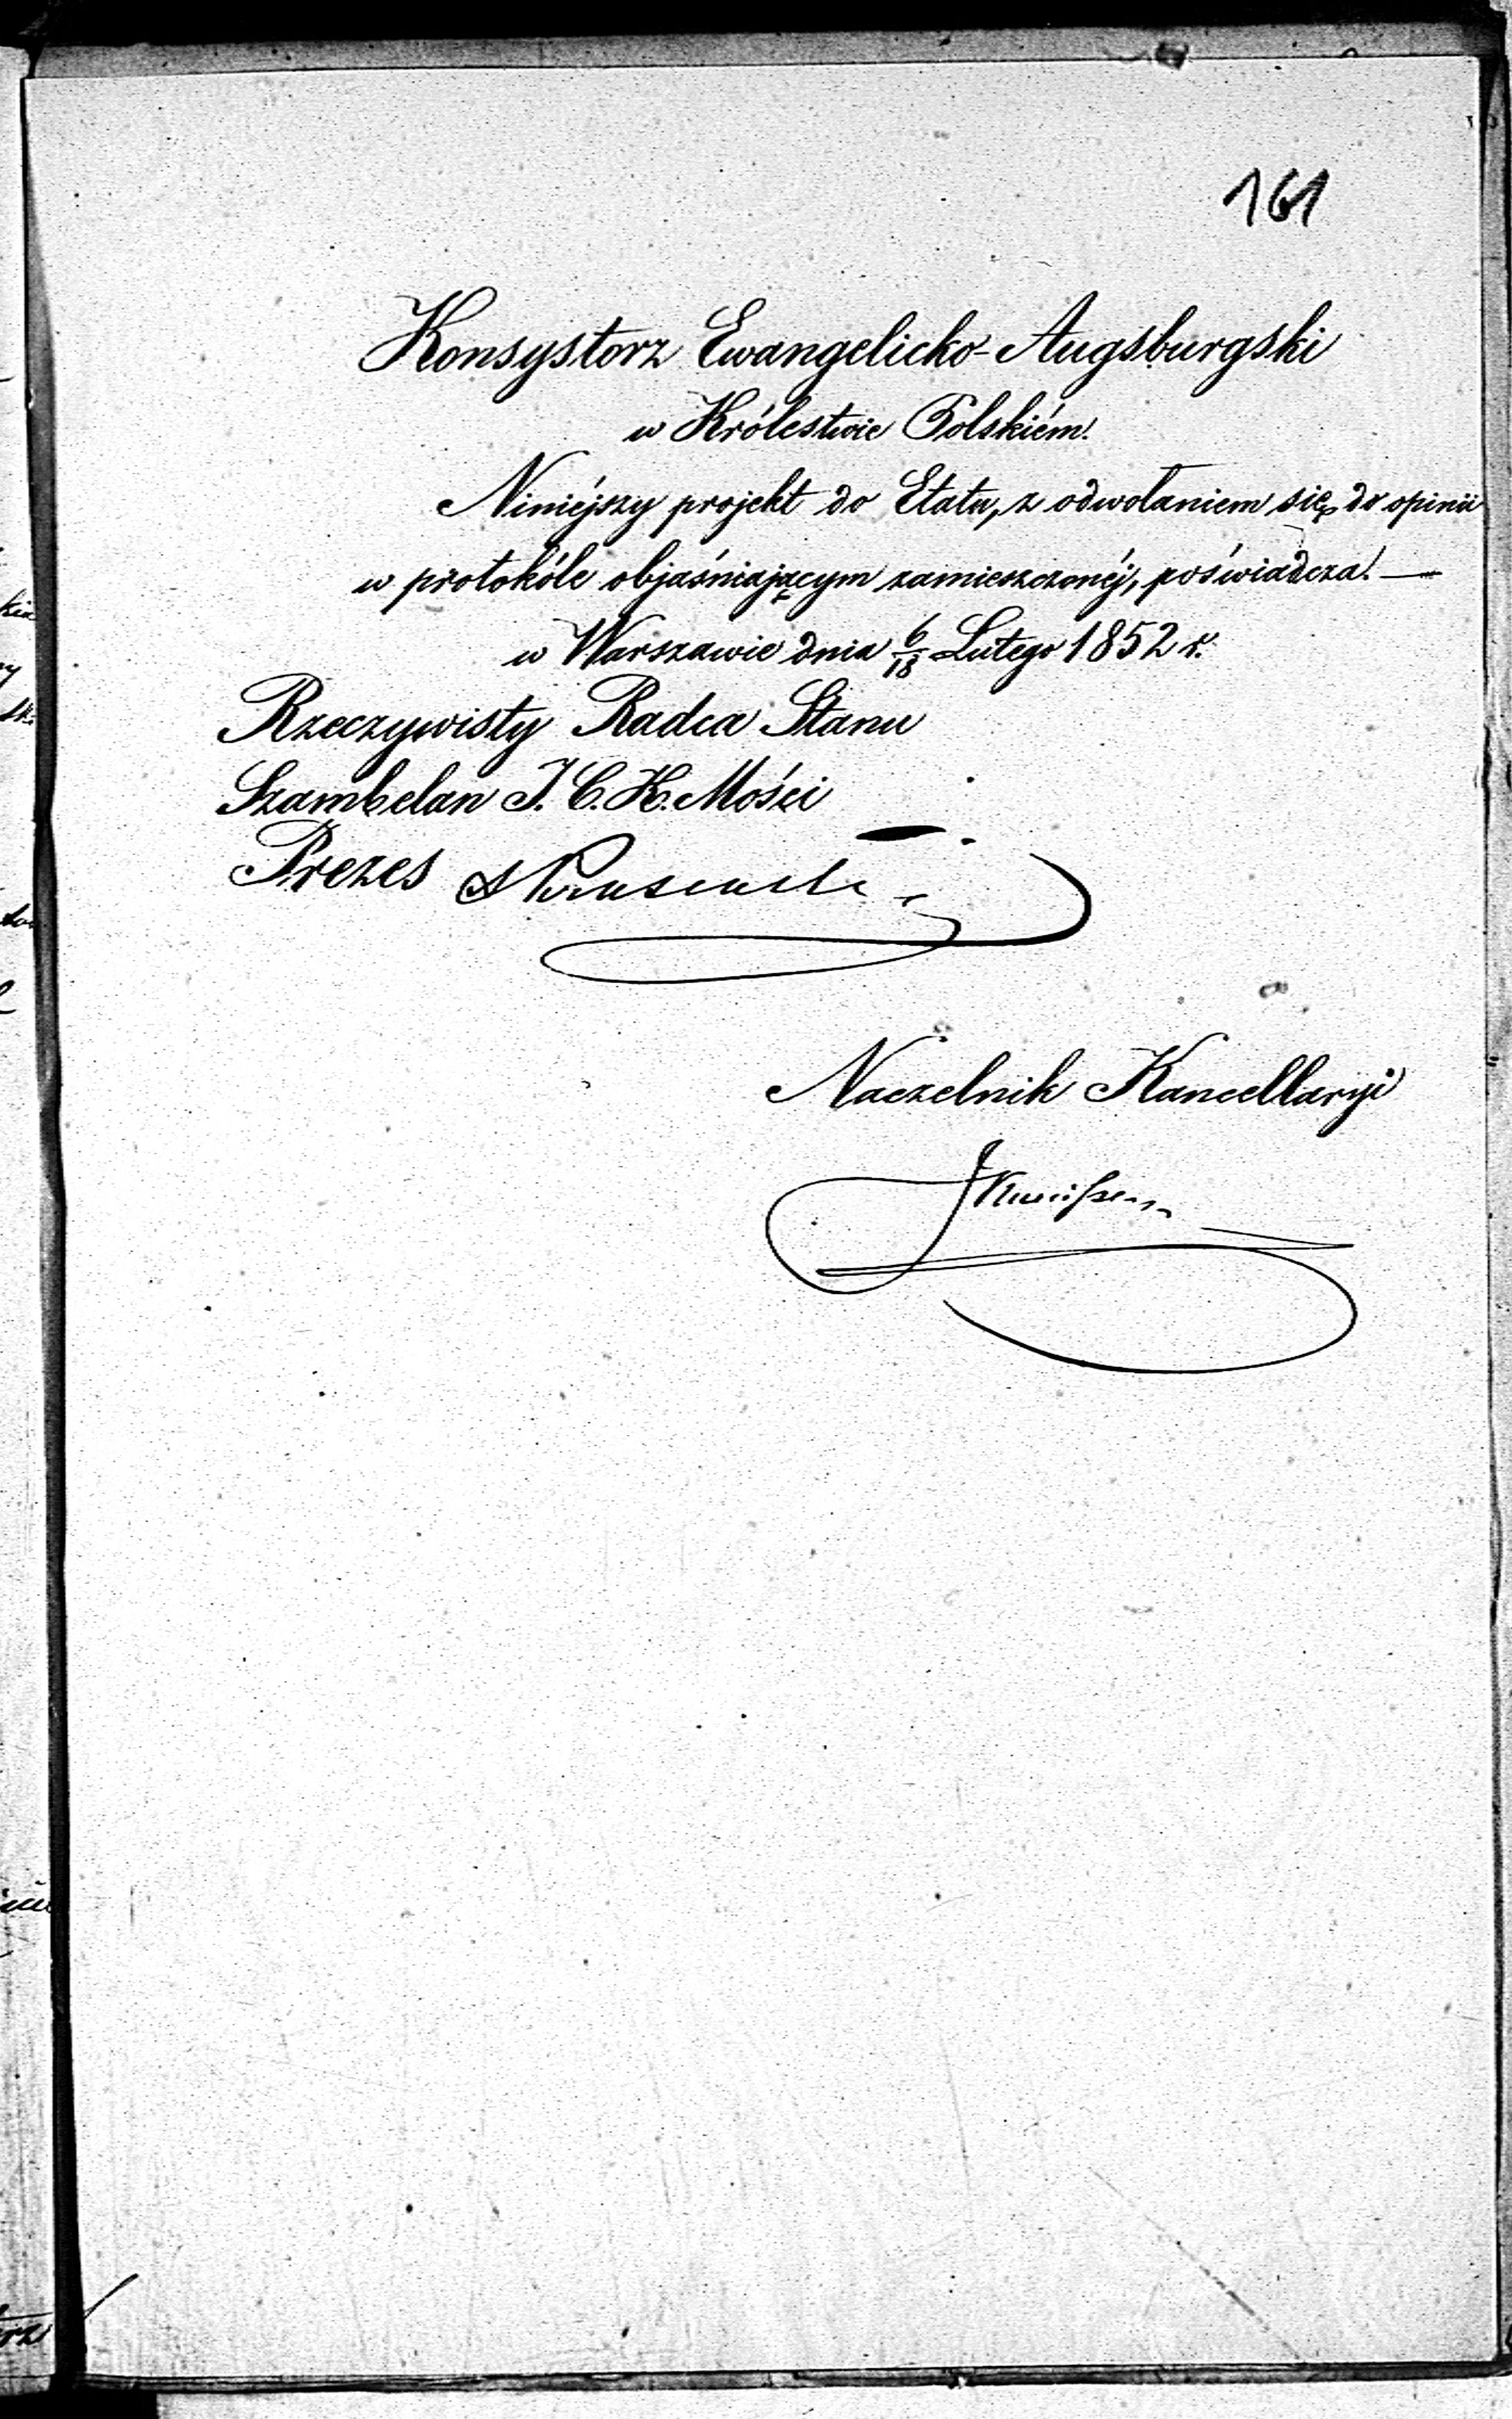 161
Konsystorz Ewangelicko-Augsburgski
w Królestwie Polskiém.
Niniéjszy projekt do Etatu, z odwołaniem się do opinii
w protokóle objaśniającym zamieszczonéj, poświadcza. —
w Warszawie dnia 6/18 Lutego 1852 r.
Rzeczywisty Radca Stanu
Szambelan J. C. K. Mości
Prezes
Naczelnik Kancellaryi